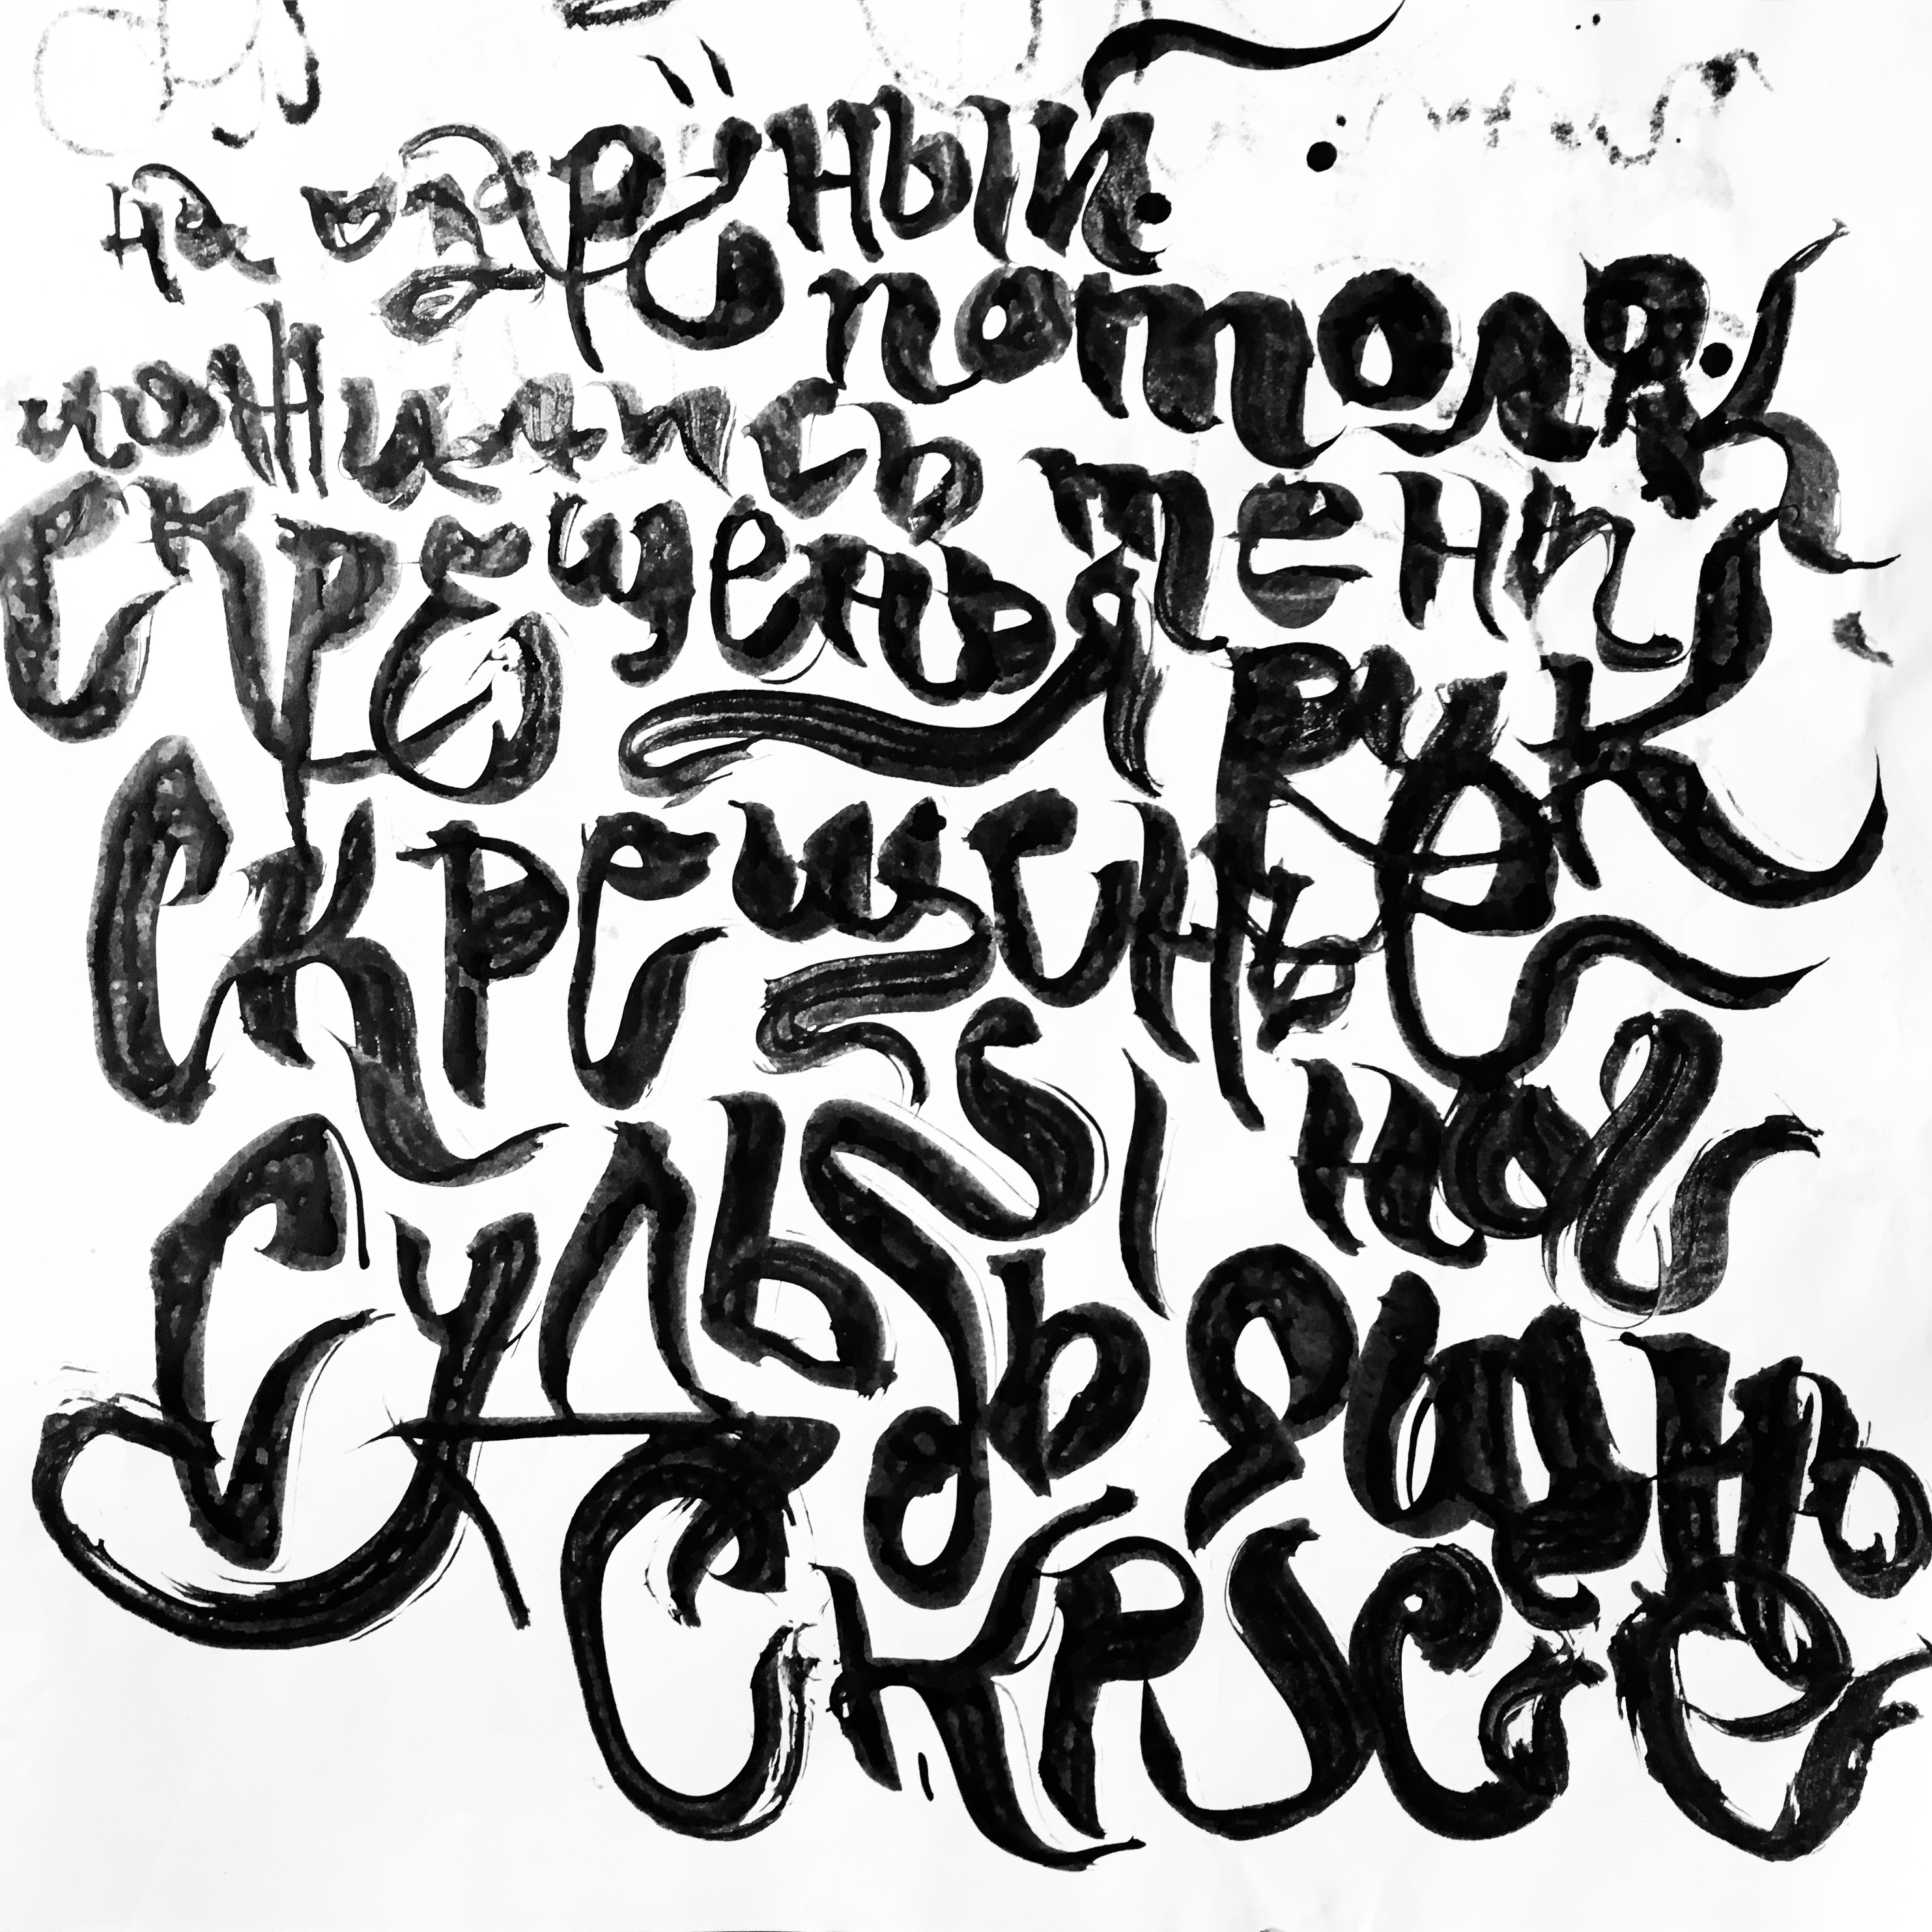 на озарёный
потолок
ложились тени
скрещенья рук
скрещенья ног
судьбы
скрещенье